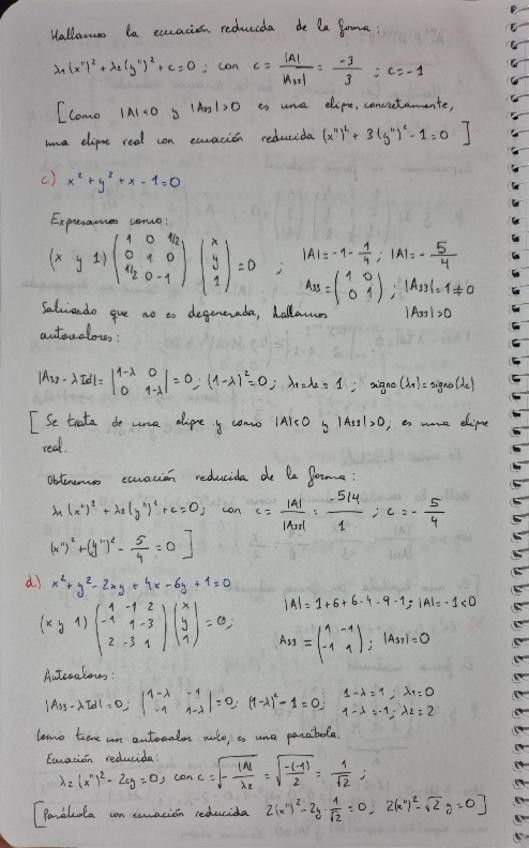 Hallamos la ecuación reducida de la forma:
λ1(x")² + λ2(y")² + c = 0 ; con c = |A| / |A33| = -3/3 ; c = -1
[Como |A|<0 y |A33|>0 es una elipse, concretamente,
una elipse real con ecuación reducida (x")² + 3(y")² - 1 = 0 ]
c) x² + y² + x - 1 = 0
Expresamos como:
(x y 1) (1 0 1/2 ; 0 1 0 ; 1/2 0 -1) (x ; y ; 1) = 0 ; |A| = -1 - 1/4 ; |A| = - 5/4
A33 = (1 0 ; 0 1) ; |A33| = 1 ≠ 0
Sabiendo que no es degenerada, hallamos |A33| > 0
autovalores:
|A33 - λId| = |1-λ 0 ; 0 1-λ| = 0 ; (1-λ)² = 0 ; λ1 = λ2 = 1 ; signo(λ1) = signo(λ2)
[ Se trata de una elipse y como |A|<0 y |A33|>0, es una elipse
real.
Obtenemos ecuación reducida de la forma:
λ1(x")² + λ2(y")² + c = 0, con c = |A| / |A33| = -5/4 / 1 ; c = - 5/4
(x")² + (y")² - 5/4 = 0 ]
d) x² + y² - 2xy + 4x - 6y + 1 = 0
(x y 1) (1 -1 2 ; -1 1 -3 ; 2 -3 1) (x ; y ; 1) = 0 ; |A| = 1+6+6-4-9-1 ; |A| = -1 < 0
A33 = (1 -1 ; -1 1) ; |A33| = 0
Autovalores:
|A33 - λId| = 0 ; |1-λ -1 ; -1 1-λ| = 0 ; (1-λ)² - 1 = 0 ; 1-λ = 1 , λ1 = 0
1-λ = -1 , λ2 = 2
Como tiene un autovalor nulo, es una parábola.
Ecuación reducida:
λ2(x")² - 2cy = 0 ; con c = √(- |A| / λ2) = √(-(-1) / 2) = 1/√2 ;
[Parábola con ecuación reducida 2(x")² - 2y · 1/√2 = 0 ; 2(x")² - √2 y = 0 ]